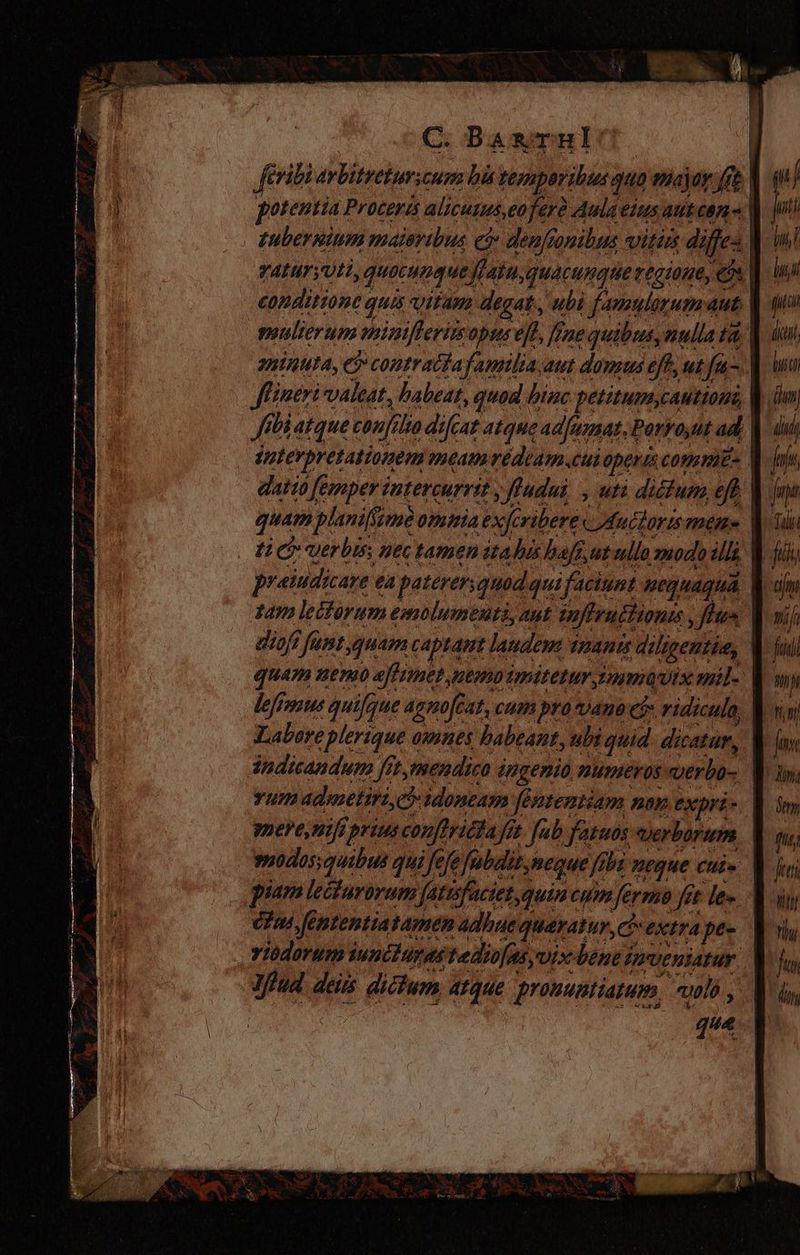 C. BARTHI
ſcribi arbitretur; cum his temporibus quo major ſit
potentia Proceris alicuius, eo ferè Aula eius aut con-
tubernium maioribus & denſionibus vitiis diffe-
ratur; vti, quocunque ſtatu, quacunque regione, &
conditione quis vitam degat, ubi famulorum aut
mulierum miniſteriis opus eſt, ſine quibus, nulla tā
minuta, & contracta familia aut domus eſt, ut ſu-
ſtineri valeat, habeat, quod hinc petitum, cautioni
ſibi atque conſilio diſcat atque adſumat. Porro, ut ad
interpretationem meam rédeam, cui operis commē-
datio ſemper intercurrit, ſtudui, uti dictum eſt
quam planiſſimè omnia exſcribere Auctoris men-
ti & verbis; nec tamen ita his haſi, ut ullo modo illi
præiudicare ea paterer; quod qui faciunt nequaquā
tam lectorum emolumenti, aut inſtructionis, ſtu-
dioſi ſunt, quam captant laudem inanis diligentiæ,
quam nemo æſtimet, nemo imitetur, immo vix mil-
leſimus quiſque agnoſcat, cum pro vano & ridiculo
Labore plerique omnes habeant, ubi quid dicatur,
indicandum ſit, mendico ingenio numeros verbo-
rum admetiri, & idoneam ſententiam non expri-
mere, niſi prius conſtricta ſit ſub fatuos verborum
modos; quibus qui ſeſe ſubdit, neque ſibi neque cui-
piam lecturorum ſatisfaciet, quin cùm ſermo ſit le-
ctus, ſententia tamen adhuc quæratur, & extra pe-
riodorum iuncturas tædioſas, vix bene inveniatur
Iſtud deiis dictum atque pronuntiatum volo,
quæ